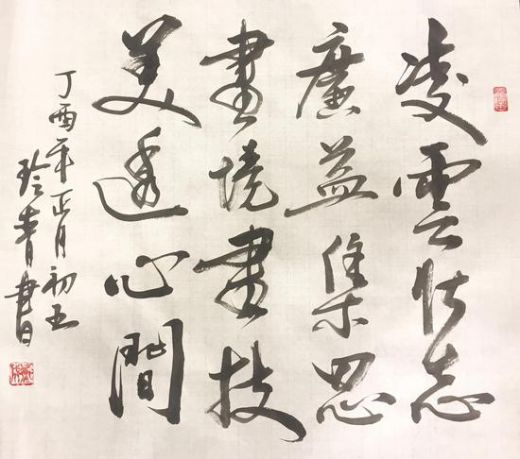 凌雲壯志
廣益集思
畫境畫技
美透心間
丁酉年正月初五
玲青書